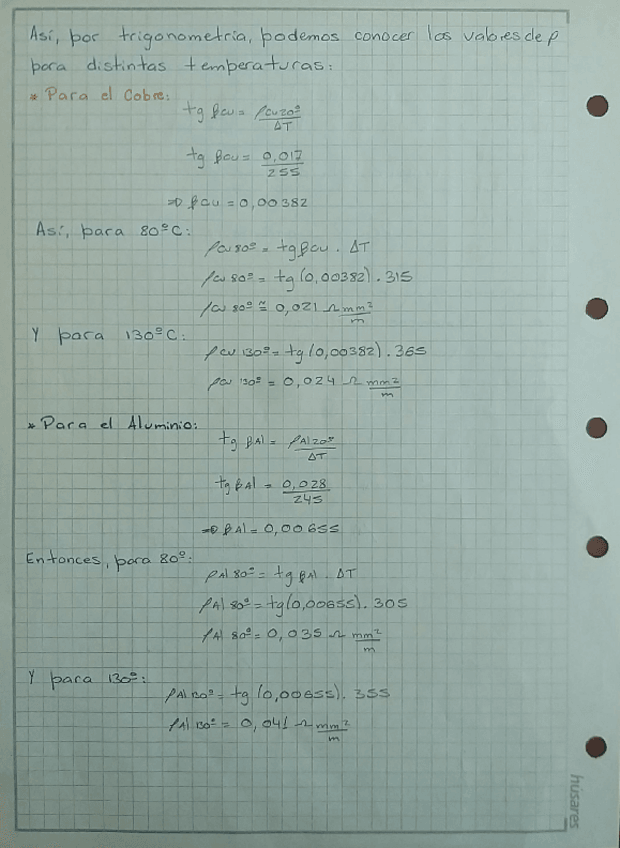 Así, por trigonometría, podemos conocer los valores de ρ
para distintas temperaturas:
* Para el Cobre:
tg βcu = ρcu20º / ΔT
tg βcu = 0,017 / 255
⇒ βcu = 0,00382
Así, para 80ºC:
ρcu 80º = tg βcu . ΔT
ρcu 80º = tg (0,00382) . 315
ρcu 80º ≅ 0,021 Ω mm² / m
Y para 130ºC:
ρcu 130º = tg (0,00382) . 365
ρcu 130º = 0,024 Ω mm² / m
* Para el Aluminio:
tg βAl = ρAl20º / ΔT
tg βAl = 0,028 / 245
⇒ βAl = 0,00655
Entonces, para 80º:
ρAl 80º = tg βAl . ΔT
ρAl 80º = tg (0,00655) . 305
ρAl 80º = 0,035 Ω mm² / m
Y para 130º:
ρAl 130º = tg (0,00655) . 355
ρAl 130º = 0,041 Ω mm² / m
húsares